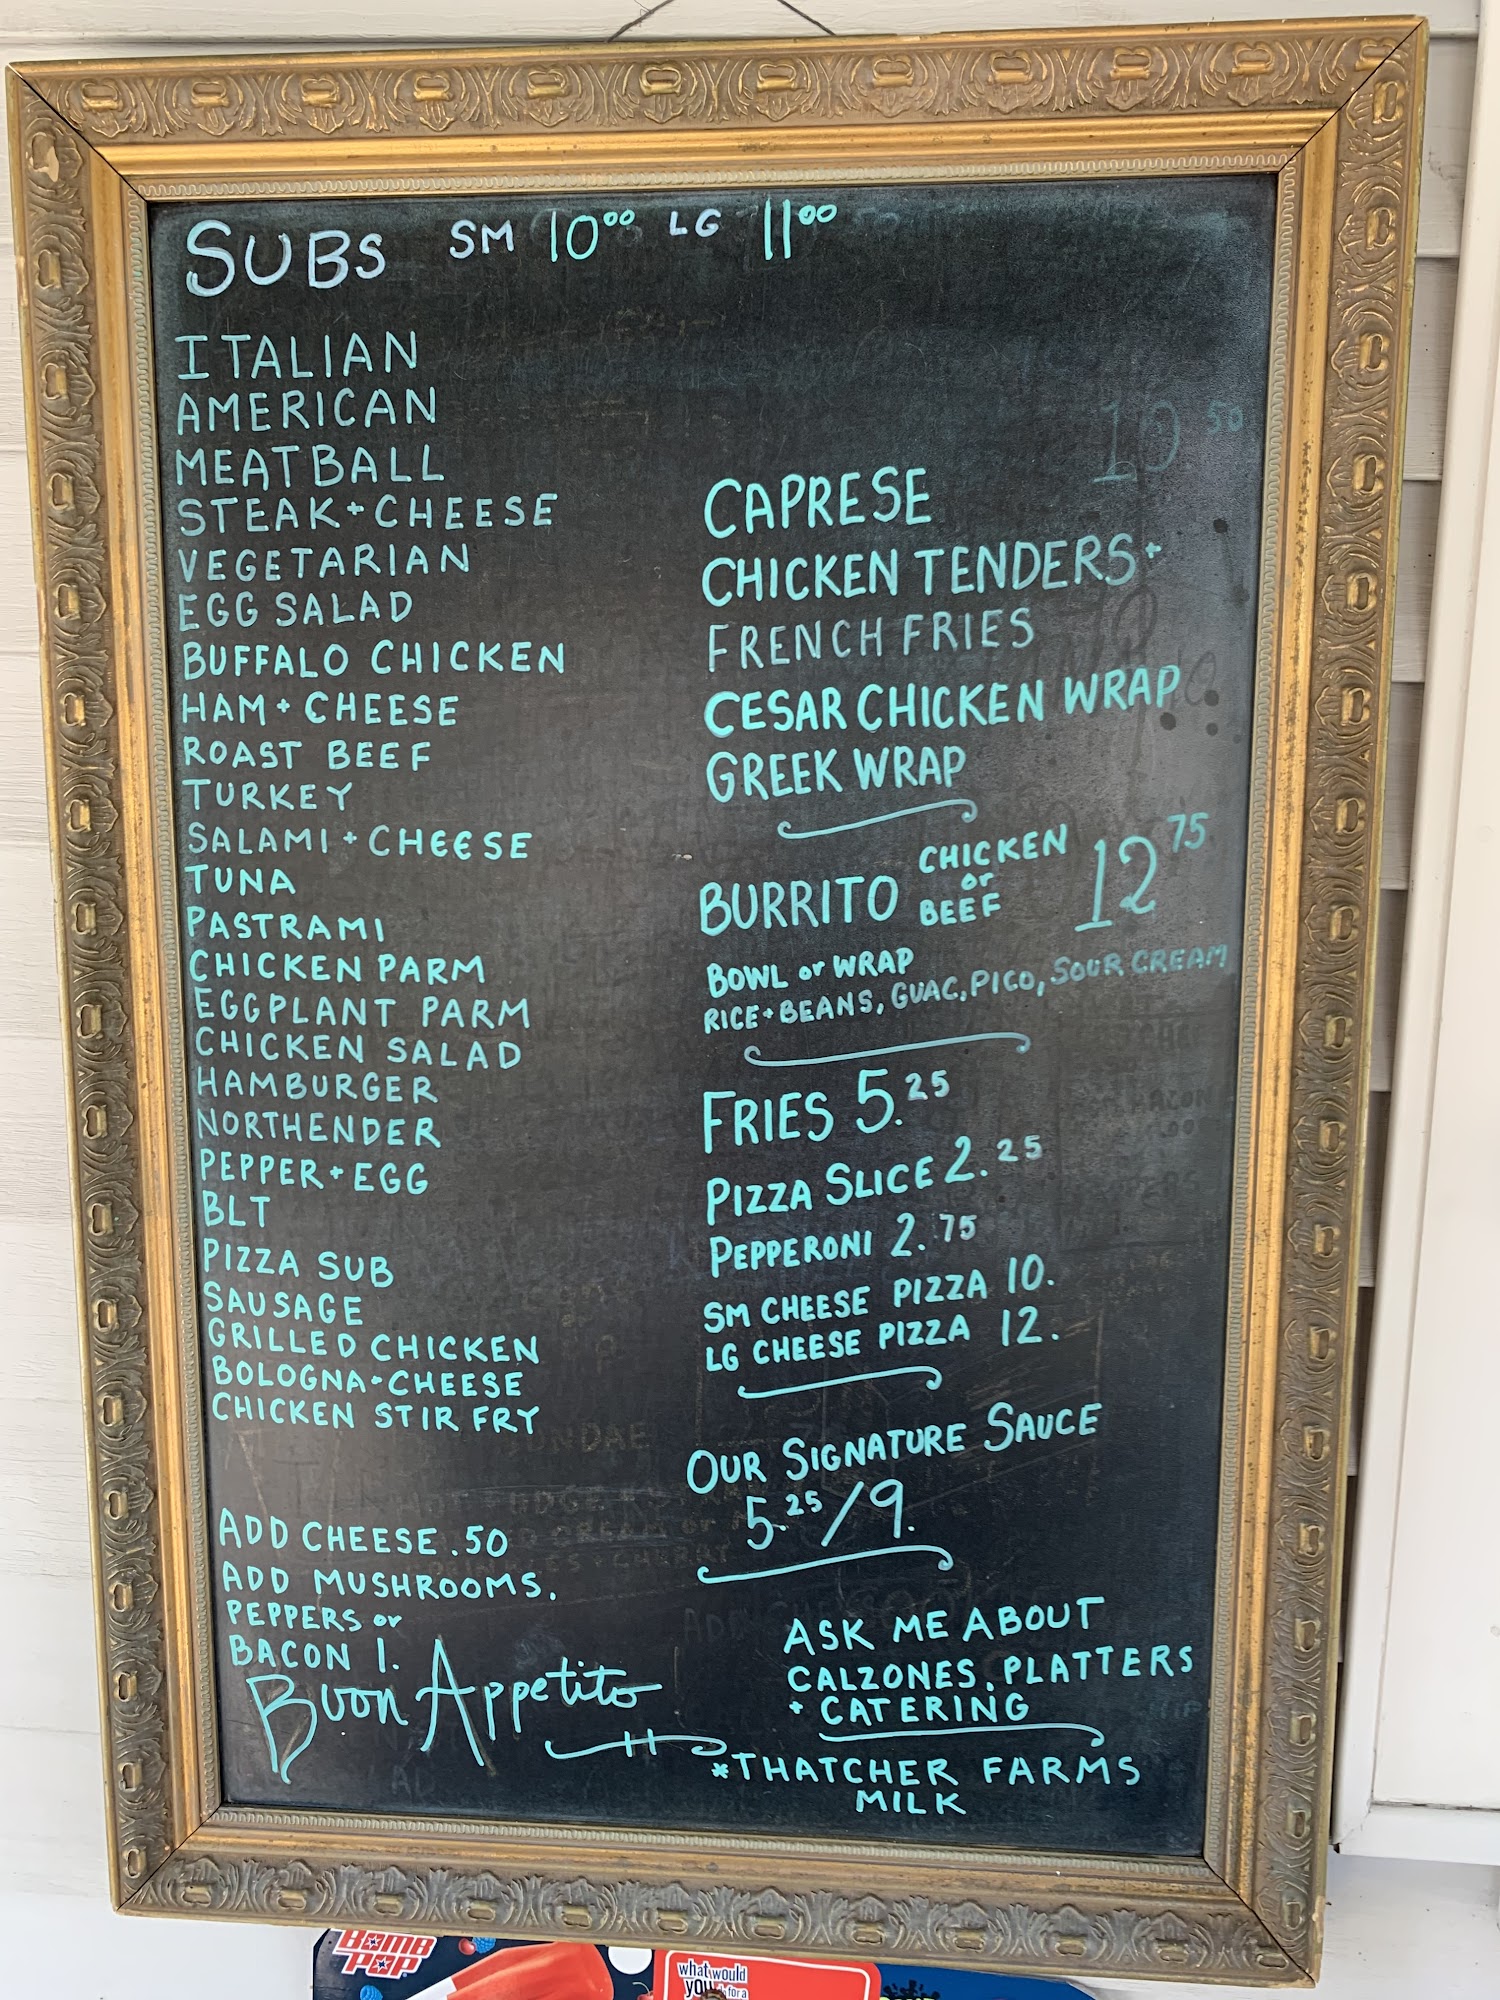 SUBS SM 10⁰⁰ LG 11⁰⁰
ITALIAN
AMERICAN
MEATBALL
STEAK + CHEESE
VEGETARIAN
EGG SALAD
BUFFALO CHICKEN
HAM + CHEESE
ROAST BEEF
TURKEY
SALAMI + CHEESE
TUNA
PASTRAMI
CHICKEN PARM
EGGPLANT PARM
CHICKEN SALAD
HAMBURGER
NORTHENDER
PEPPER + EGG
BLT
PIZZA SUB
SAUSAGE
GRILLED CHICKEN
BOLOGNA + CHEESE
CHICKEN STIR FRY
ADD CHEESE .50
ADD MUSHROOMS,
PEPPERS or
BACON 1.
Buon Appetito
10 50
CAPRESE
CHICKEN TENDERS +
FRENCH FRIES
CESAR CHICKEN WRAP
GREEK WRAP
BURRITO CHICKEN or BEEF 12⁷⁵
BOWL or WRAP
RICE + BEANS, GUAC, PICO, SOUR CREAM
FRIES 5.²⁵
PIZZA SLICE 2.²⁵
PEPPERONI 2.⁷⁵
SM CHEESE PIZZA 10.
LG CHEESE PIZZA 12.
OUR SIGNATURE SAUCE
5.²⁵/9.
ASK ME ABOUT
CALZONES, PLATTERS
+ CATERING
*THATCHER FARMS
MILK
BOMB
POP
what would
YOU for a